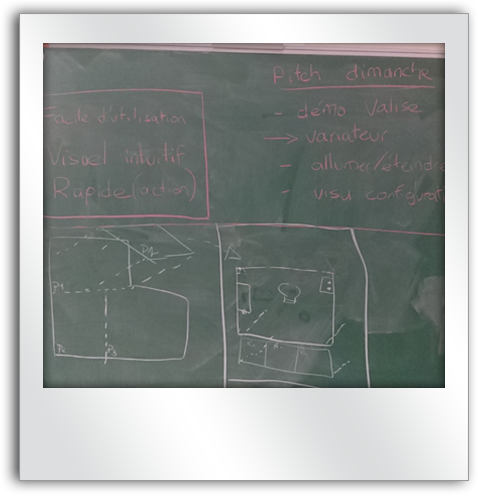 Facile d'utilisation
Visuel intuitif
Rapide (action)
Pitch dimanche
- démo Valise
→ variateur
- allumer/éteindre
- visu configurat
P1
P3